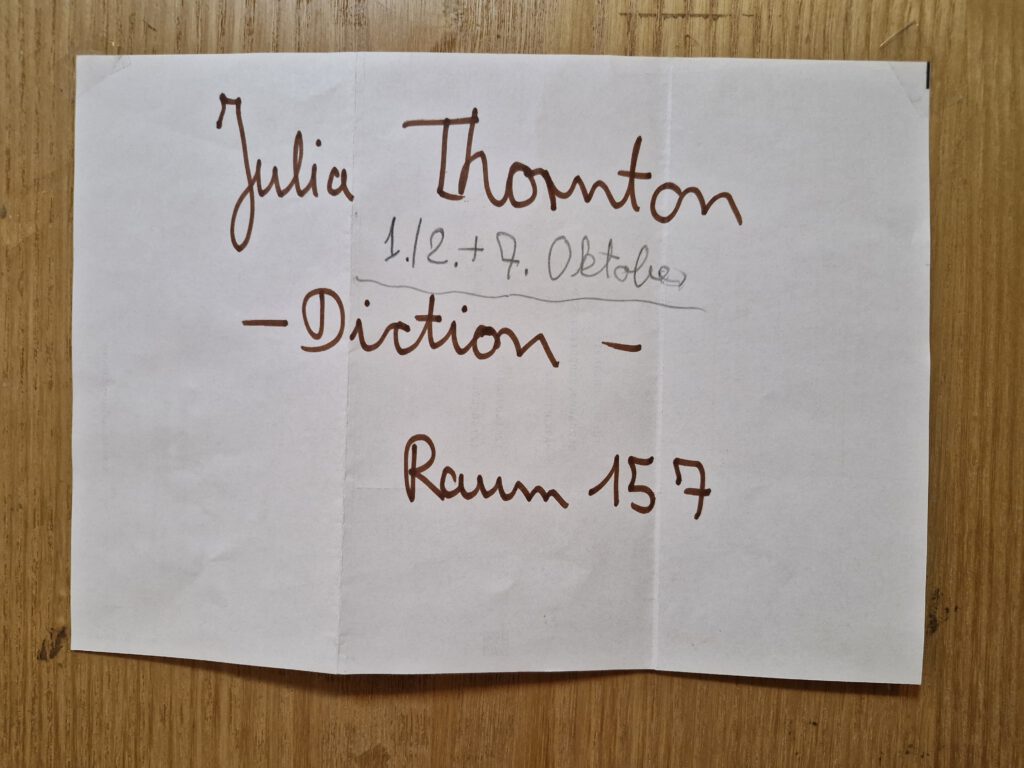 Julia Thornton
1./2. + 7. Oktober
- Diction -
Raum 157